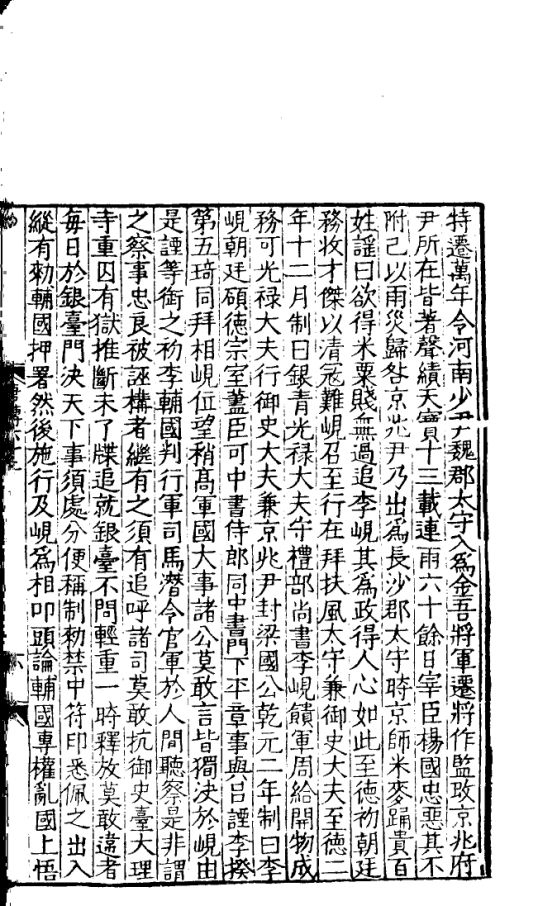 特遷萬年令河南少尹魏郡太守入為金吾將軍遷將作監改京兆府
尹所在皆著聲績天寶十三載連雨六十餘日宰臣楊國忠惡其不
附己以雨災歸咎京兆尹乃出為長沙郡太守時京師米麥踊貴百
姓謡曰欲得米粟賤無過追李峴其為政得人心如此至德初朝廷
務收才傑以清寇難峴召至行在拜扶風太守兼御史大夫至德二
年十二月制曰銀青光禄大夫守禮部尚書李峴饋軍周給開物成
務可光禄大夫行御史大夫兼京兆尹封梁國公乾元二年制曰李
峴朝廷碩德宗室藎臣可中書侍郎同中書門下平章事與吕諲李揆
第五琦同拜相峴位望稍高軍國大事諸公莫敢言皆獨決於峴由
是諲等銜之初李輔國判行軍司馬潛令官軍於人間聽察是非謂
之察事忠良被誣構者繼有之須有追呼諸司莫敢抗御史臺大理
寺重囚有獄推斷未了牒追就銀臺不問輕重一時釋放莫敢違者
每日於銀臺門決天下事須處分便稱制勑禁中符印悉佩之出入
縱有勑輔國押署然後施行及峴為相叩頭論輔國專權亂國上悟